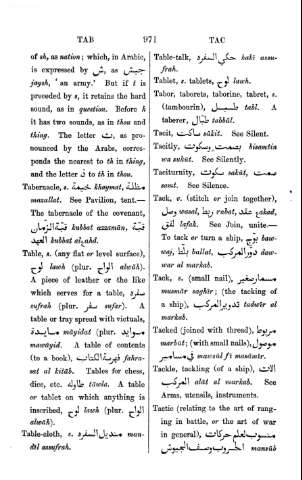 TAB 971 TAC
of sh, as nation; which, in Arabic,
is expressed by ش, as جيش
jaysh, 'an army.' But if t is
preceded by s, it retains the hard
sound, as in question. Before h
it has two sounds, as in thou and
thing. The letter ث, as pro-
nounced by the Arabs, corres-
ponds the nearest to th in thing,
and the letter ذ to th in thou.
Tabernacle, s. خيمة khaymat, مظلة
mazallat. See Pavilion, tent.—
The tabernacle of the covenant,
قبة الزمان kubbat azzamān, قبة
العهد kubbat al
Table, s. (any flat or level surface),
لوح lawh (plur. الواح alwāh).
A piece of leather or the like
which serves for a table, سفرة
sufrah (plur. سفر sufar). A
table or tray spread with victuals,
مايدة māyidat (plur. موايد
mawāyid). A table of contents
(to a book), فهرسة الكتاب fahra-
sat al kitāb. Tables for chess,
dice, etc. طاوله tāwla. A table
or tablet on which anything is
inscribed, لوح lawh (plur. الواح
alwāh).
Table-cloth, s. منديل السفره man-
dīl assufrah.
Table-talk, حكي السفره haki assu-
frah.
Tablet, s. tablets, لوح lawh.
Tabor, taborets, taborine, tabret, s.
(tambourin), طبل tabl. A
taberer, طبال tabbāl.
Tacit, ساكت sākit. See Silent.
Tacitly, بصمت وسكوت bisamtin
wa sukūt. See Silently.
Taciturnity, سكوت sakūt, صمت
samt. See Silence.
Tack, v. (stitch or join together),
وصل wasal, ربط rabat, عقد
لفق lafak. See Join, unite.—
To tack or turn a ship,
ballat, دور المركب daw-
war al markab.
Tack, s. (small nail), مسمار صغير
musmār saghīr; (the tacking of
a ship), تدوير المركب tadwīr al
markab.
Tacked (joined with thread), مربوط
marbat; (with small nails), موصول
في مسامير mawsūl fi masāmīr.
Tackle, tackling (of a ship), الات
المركب alāt al markab. See
Arms, utensils, instruments.
Tactic (relating to the art of rang-
ing in battle, or the art of war
in general), منسوب لعلم حركات
الحروب وصف الجيوش mansūb